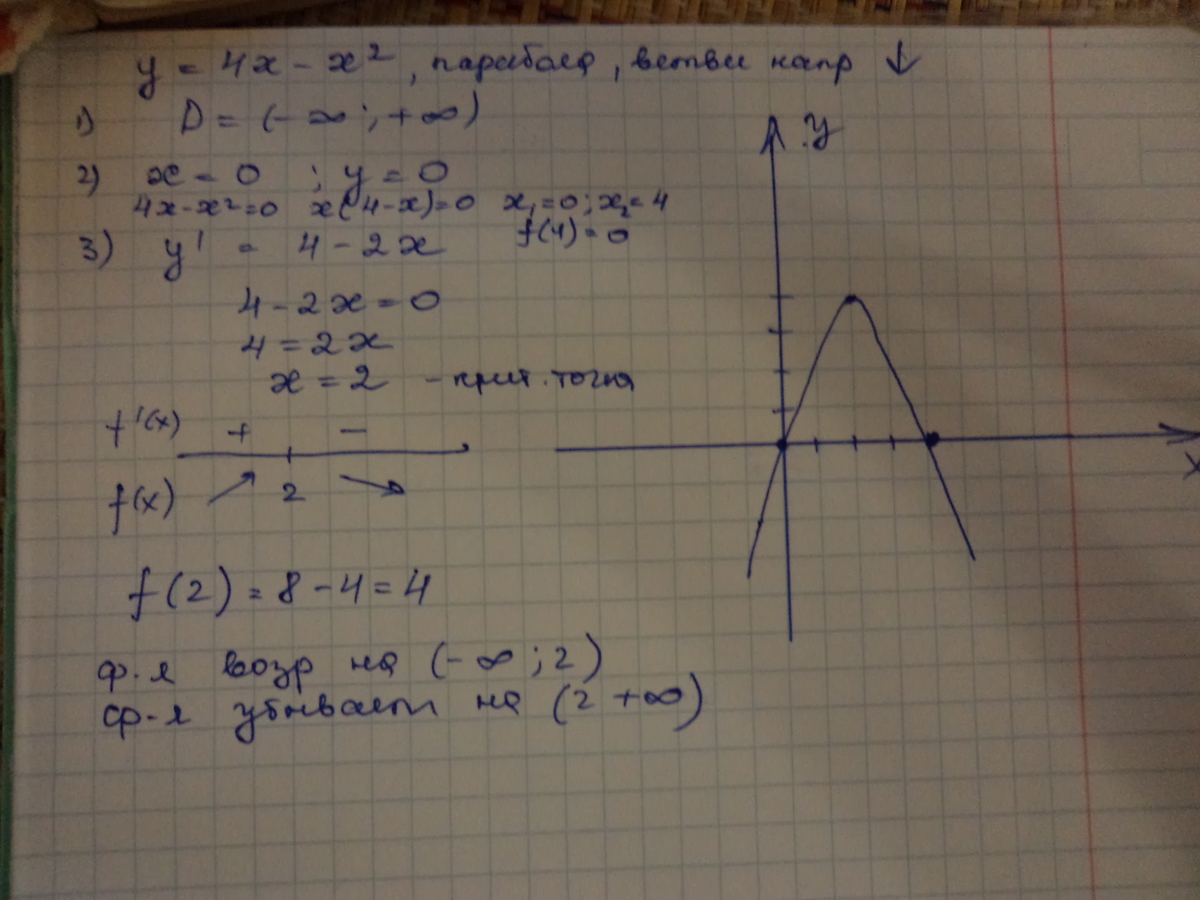 y = 4x - x², парабола, ветви напр ↓
1) D = (-∞; +∞)
2) x = 0 ; y = 0
4x-x²=0 x(4-x)=0 x₁=0; x₂=4
f(4) = 0
3) y' = 4 - 2x
4 - 2x = 0
4 = 2x
x = 2 - крит. точка
f'(x) + -
f(x) ↗ 2 ↘
f(2) = 8 - 4 = 4
ф-я возр на (-∞; 2)
ф-я убывает на (2 +∞)
y
x